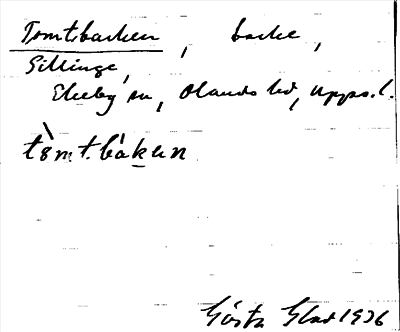 Tomtbacken, backe,
Gillinge,
Ekeby sn, Olands hd, Upps. l.
tòm.t.báken
Gösta Glad 1926